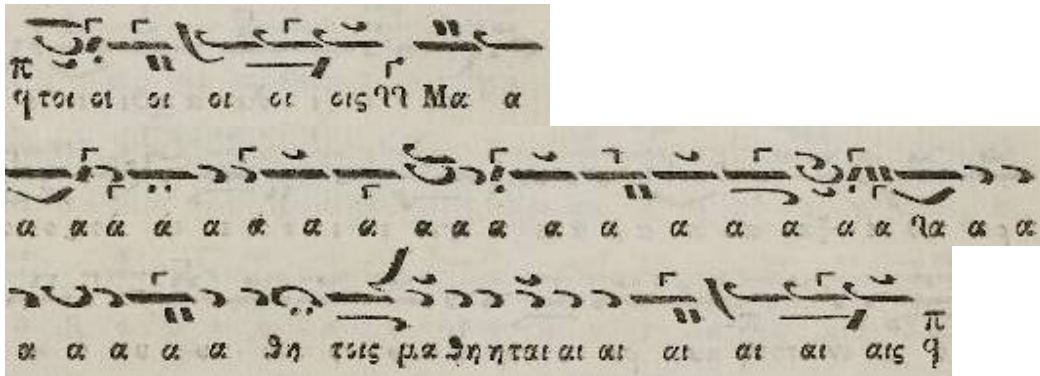 π
ϥ τοι οι οι οι οι οις ϥϥ Μα α
α α α α α α α α α α α α α α α α α α α α ϥα α α
α α α α α θη τοις μα θη η ται αι αι αι αι αι αις π ϥ